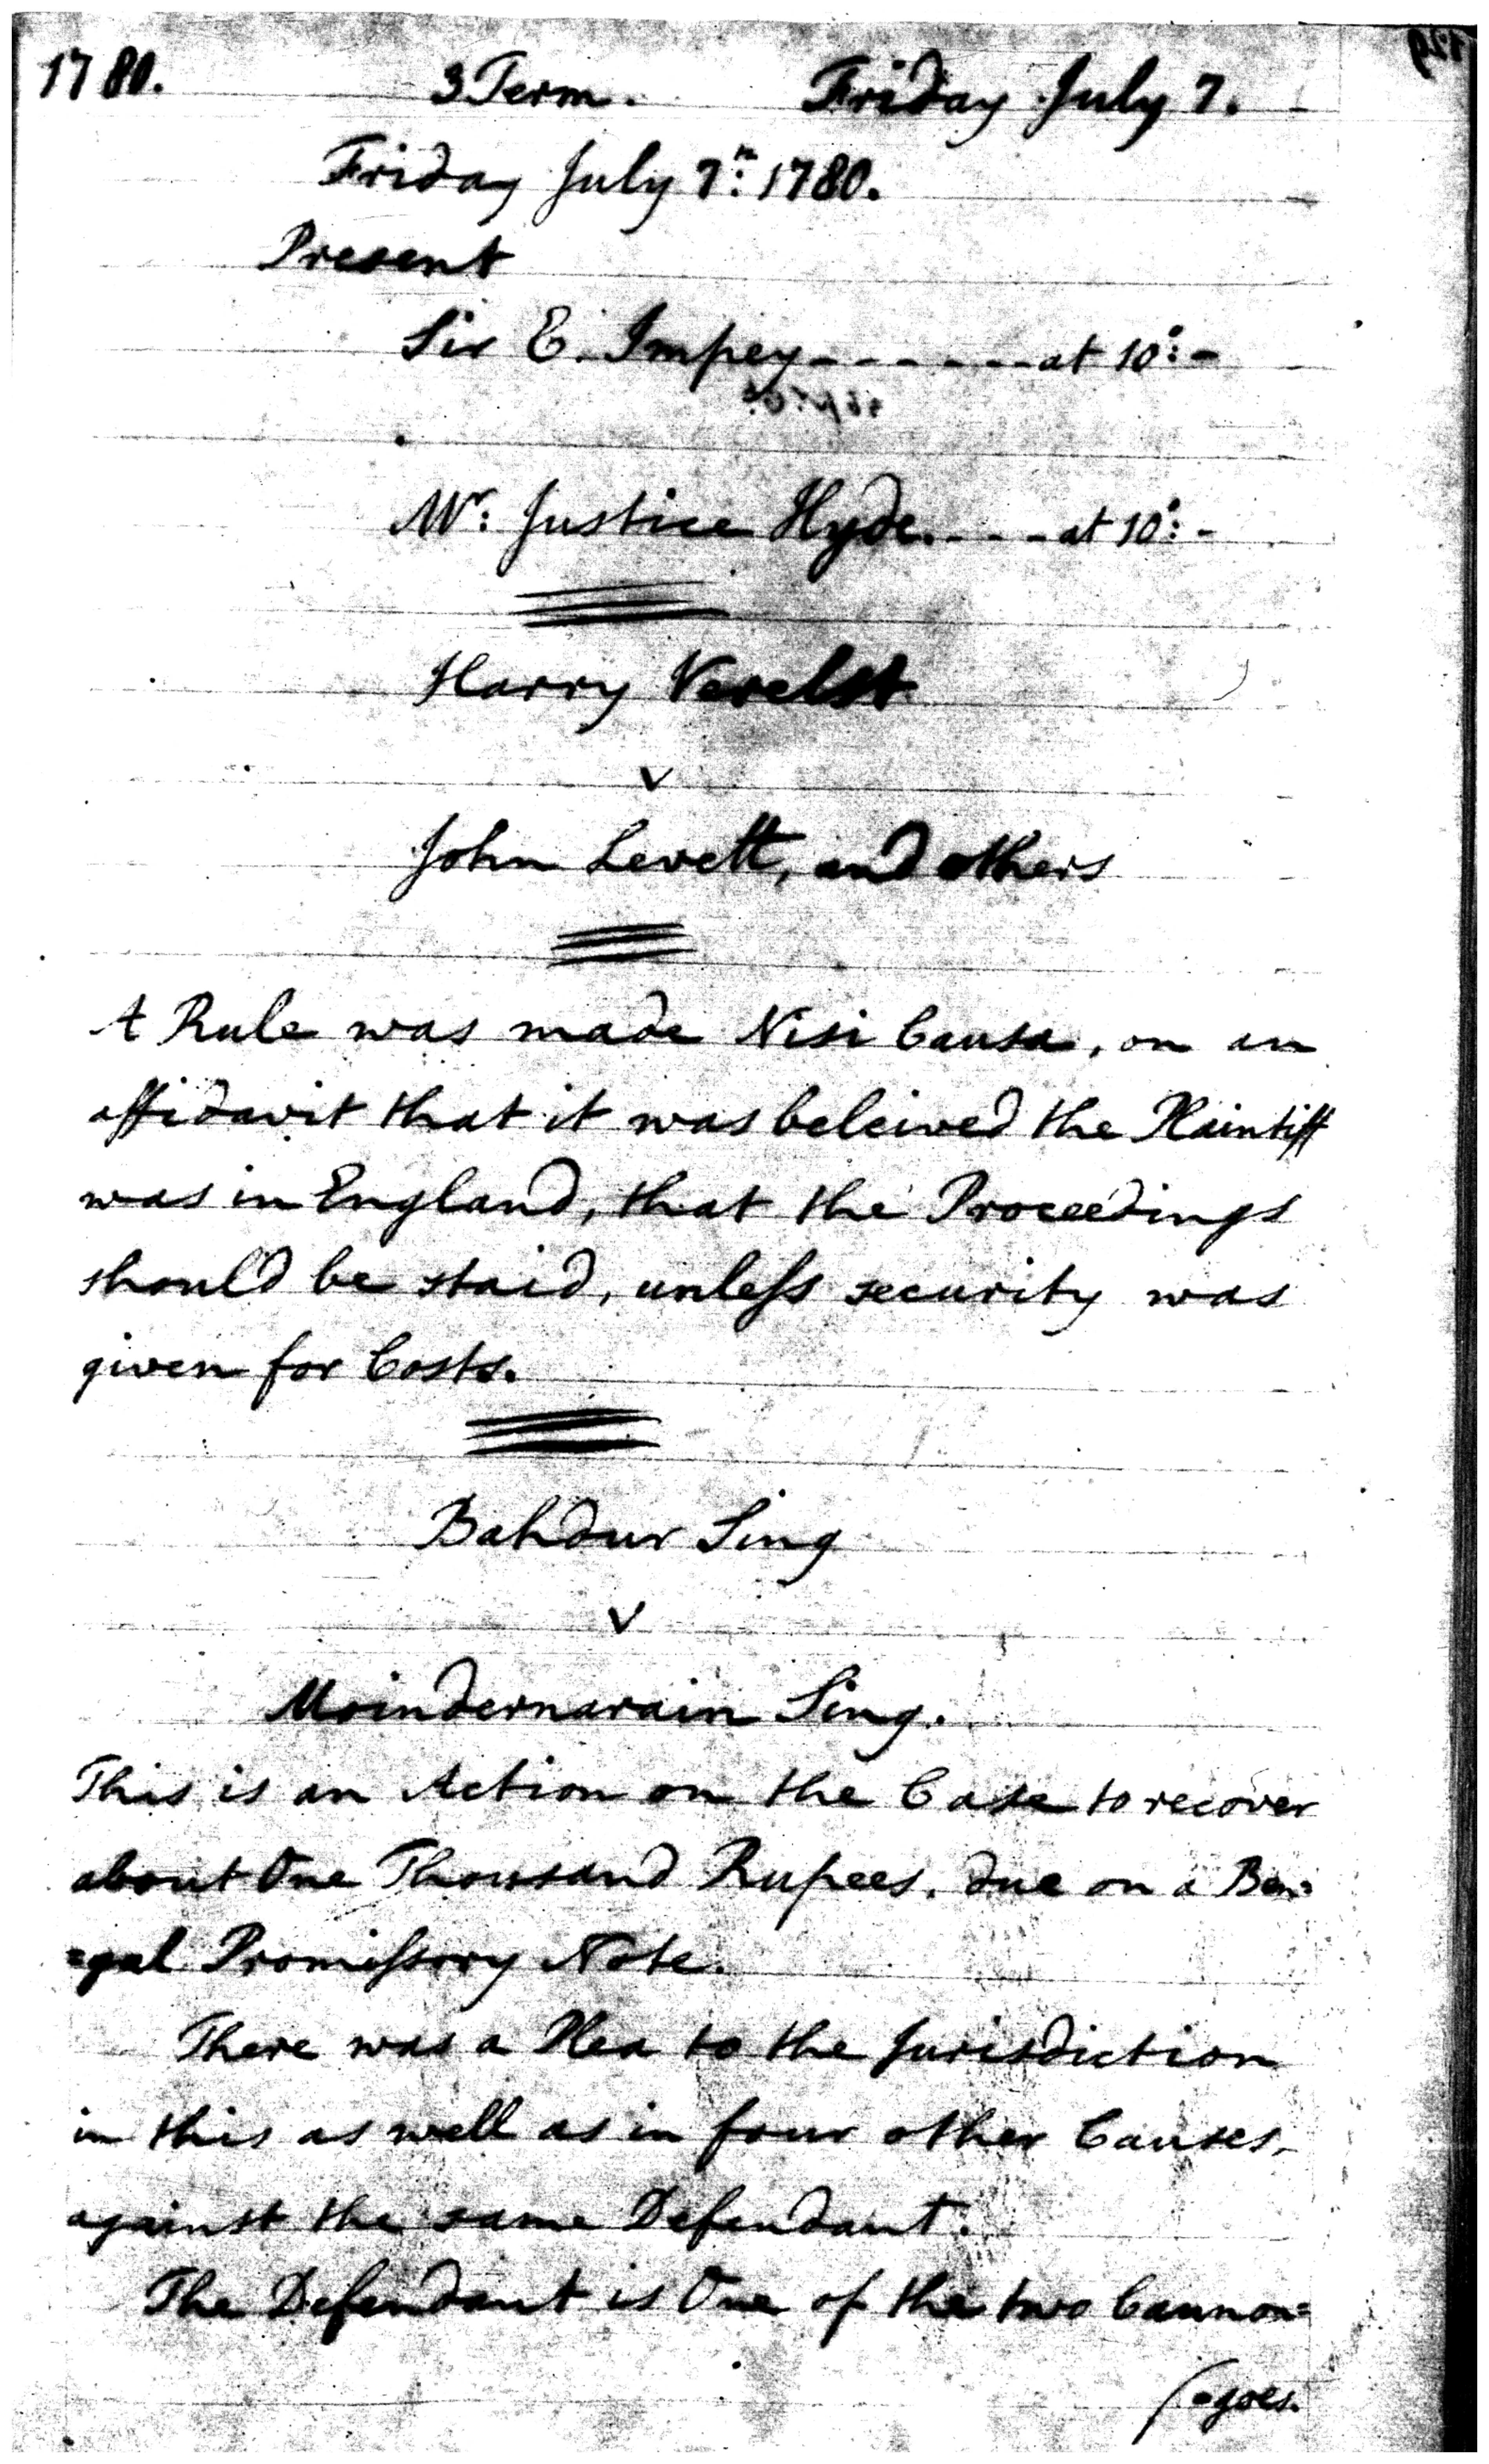 1780. 3 Term. Friday July 7.
Friday July 7th: 1780.
Present
Sir E. Impey - - - - - - - at 10°: -
Mr: Justice Hyde. - - - - at 10°: -
Harry Verelst
v
John Levett, and others
A Rule was made Nisi Causa, on an
affidavit that it was beleived the Plaintiff
was in England, that the Proceedings
should be staid, unless security was
given for Costs.
Bahdur Sing
v
Moindernarain Sing.
This is an Action on the Case to recover
about One Thousand Rupees, due on a Ben=
=gal Promissory Note.
There was a Plea to the Jurisdiction
in this as well as in four other Causes,
against the same Defendant.
The Defendant is One of the two Cannon=
=goes.